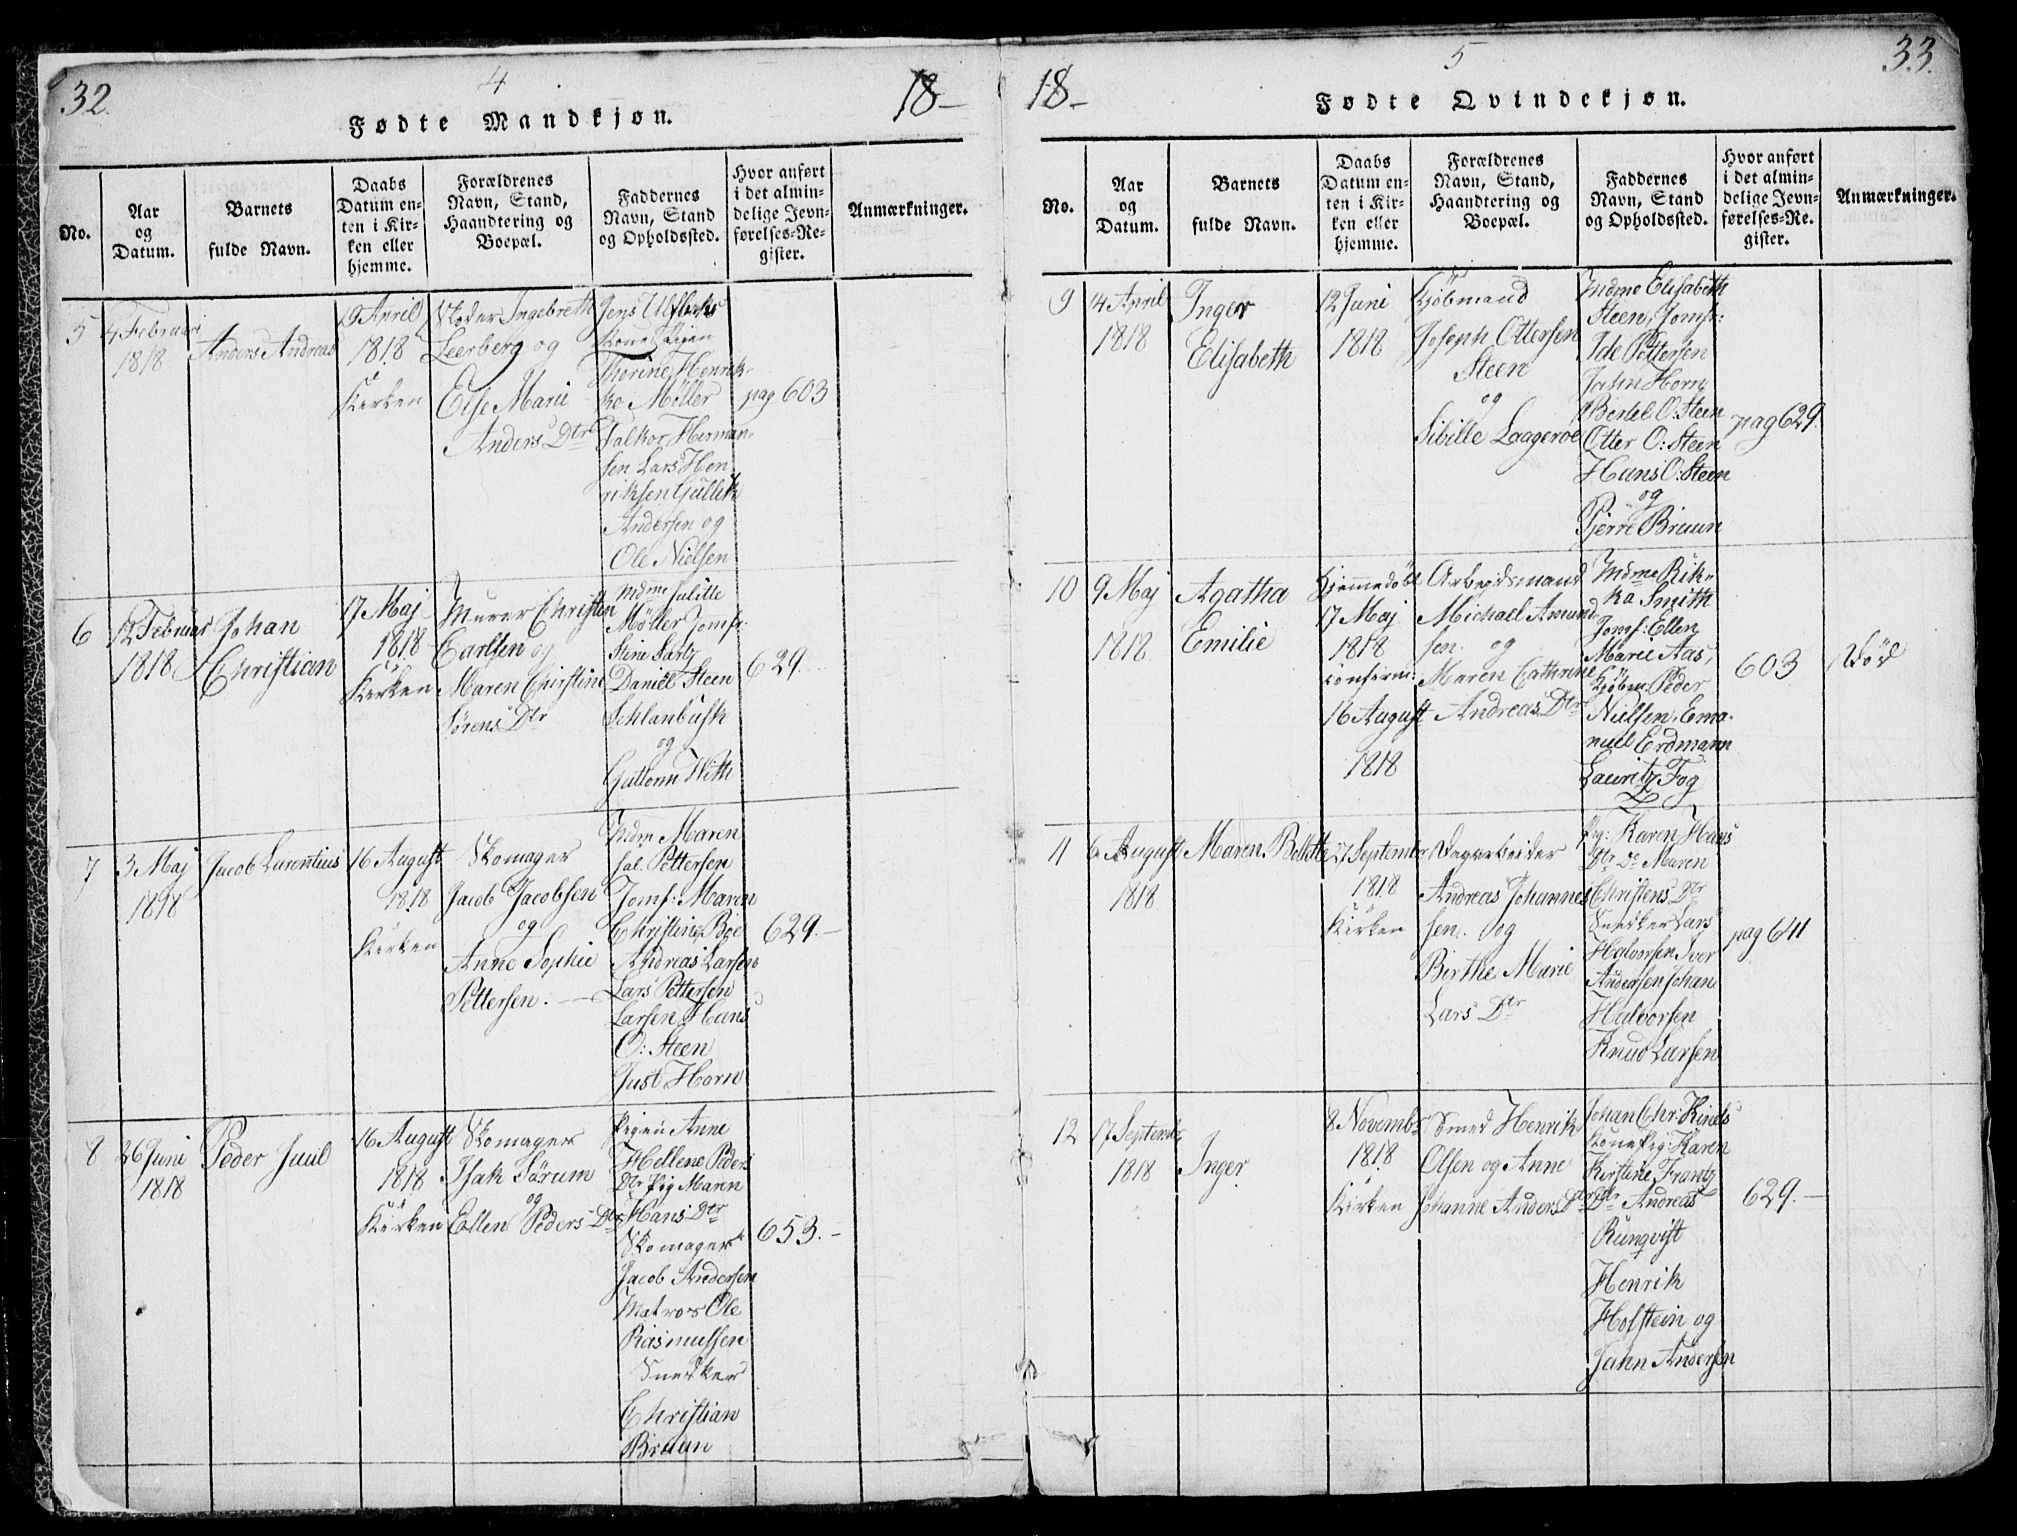 32.
4
18-
Fødte Mandkjøn.
No.
Aar
og
Datum.
Barnets
fulde Navn.
Daabs
Datum en-
ten i Kir-
ken eller
hjemme.
Forældrenes
Navn, Stand,
Haandtering og
Boepæl.
Faddernes
Navn, Stand
og Opholdssted.
Hvor anført
i det almin-
delige Jevn-
førelses-Re-
gister.
Anmærkninger.
5
4 Februari
1818
Anders Andreas
9 April
1818
Kirken
Ingebreth
Leerberg og
Else Marie
Anders Dtr
Jens Ulfbeks
Kone Pigen
Thorine Henrik-
ke Møller
Falkor Herman-
sen Lars Hen-
riksen Gullik
Andersen og
Ole Nielsen
pag 603
6
12 Februar
1818
Johan
Christian
17 Maj
1818
Kirken
Murer Christen
Carlsen og
Maren Christine
Sørens Dtr
Mdme Julitte
Møller Jomfr:
Stine Sartz
Daniel Steen
Schlanbusk
og
With
629.
7
3 Maj
1818
Jacob Laurentius
16 August
1818
Kirken
Skomager
Jacob Jacobsen
og
Anne Sophie
Pettersen.
Mdm Maren
sal. Pettersen
Jomf: Maren
Christine Bøe
Andreas Larsen
Lars Pettersen
Larsen Hans
O: Steen
Just Horn
629.-
8
26 Juni
1818
Peder Juul
16 August
1818
Kirken
Skomager
Isak Sørum
og
Ellen Peders Dtr
Pigen Anne
Hellene Peders
Dtr Pig Maren
Hans Dtr
Skomager
Jacob Andersen
Matros Ole
Rasmussen
Snedker
Christian
Bruun
653.-
18-
5
33.
Fødte Qvindekjøn.
No.
Aar
og
Datum.
Barnets
fulde Navn.
Daabs
Datum en-
ten i Kir-
ken eller
hjemme.
Forældrenes
Navn, Stand,
Haandtering og
Boepæl.
Faddernes
Navn, Stand
og Opholdssted.
Hvor anført
i det almin-
delige Jevn-
førelses-Re-
gister.
Anmærkninger.
9
4 April
1818
Inger
Elisabeth
12 Juni
1818
Kjøbmand
Joseph Ottersen
Steen
og
Sibille Laagerøe
Mdme Elisabeth
Steen, Jomfr:
Ide Pettersen
Jahn Horn
Bertel O: Steen
Otter O: Steen
Hans O: Steen
og
Pierre Bruun
pag 629.
10
9 Maj
1818.
Agatha
Emilie
Hjemmedöbt
17 Maj
1818
confirm:
16 August
1818
Arbejdsmand
Michael Amund
sen. og
Maren Cathrine
Andreas Dtr
Mdme Rik-
ka Smith
Jomf: Ellen
Marie Aas,
Kjøbm: Peder
Nielsen, Ema-
nuel Erdmann
Lauritz Fog
603
Död
11
6 August
1818
Maren Bolette
27 September
1818
Kirken
Dagarbeider
Andreas Johannes
sen. og
Birthe Marie
Lars Dtr
Pig: Karen Hans
Dtr Do Maren
Christens Dtr
Snedker Lars
Halvorsen Iver
Andersen Johan
Halvorsen
Knud Larsen
pag 641
12
17 Septemb
1818
Inger
8 Novembr
1818
Kirken
Smed Henrik
Olsen og Anne
Johanne Anders Dtr
Johan Chr: Kinds
Kone Pig: Karen
Kirstine Frantz
Dtr Andreas
Runqvist
Henrik
Holstein og
Jahn Andersen
629.-